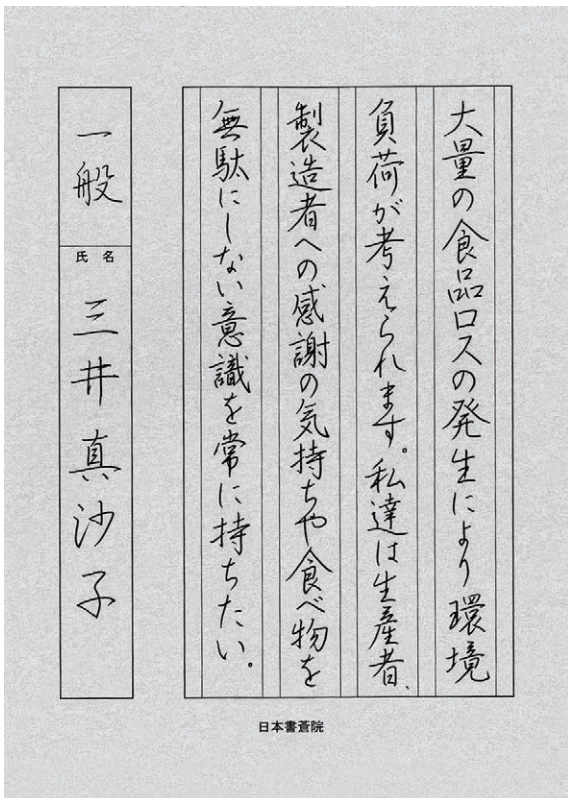 大量の食品ロスの発生により環境
負荷が考えられます。私達は生産者、
製造者への感謝の気持ちや食べ物を
無駄にしない意識を常に持ちたい。
一般
氏名
三井真沙子
日本書蒼院